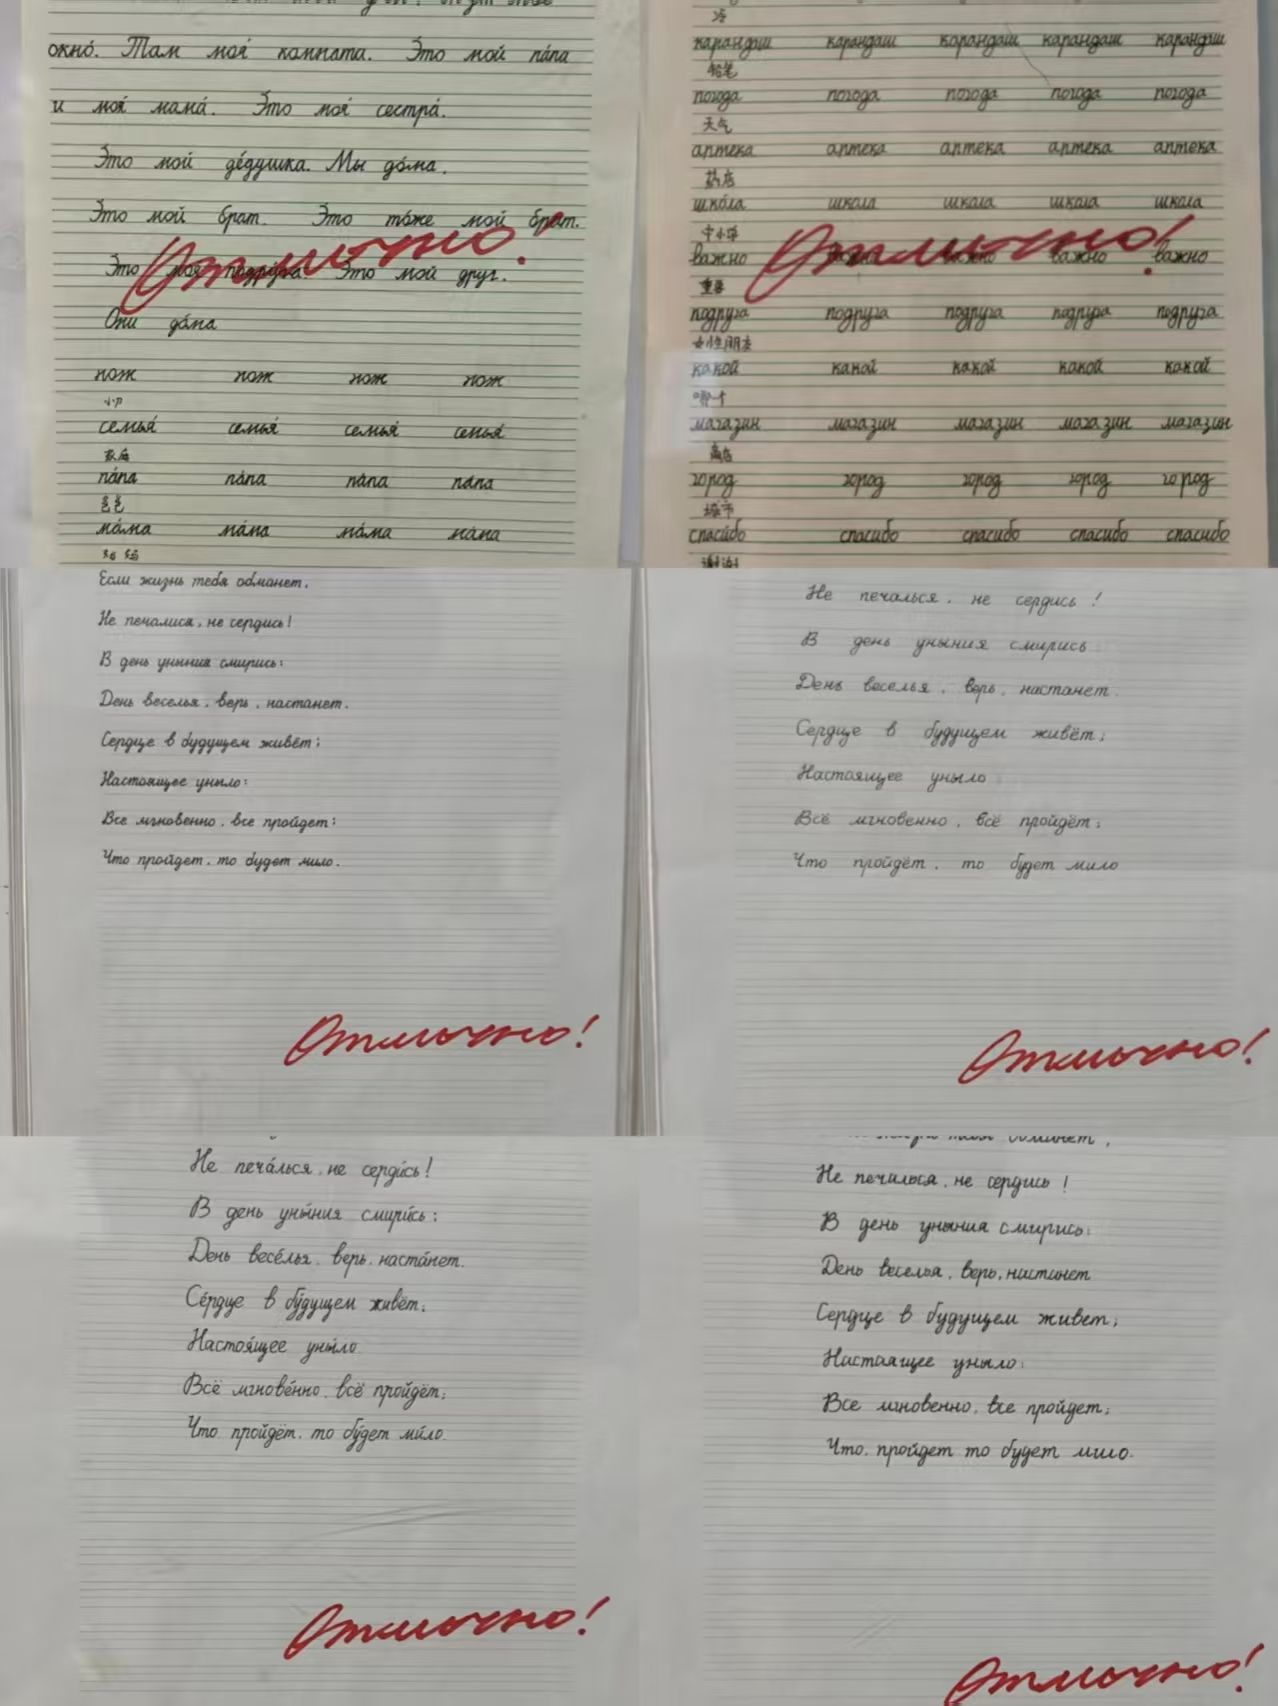 окно́. Там моя́ комната. Э́то мой па́па
и моя́ мама́. Э́то моя́ сестра́.
Э́то мой де́душка. Мы до́ма.
Э́то мой брат. Э́то то́же мой брат.
Э́то моя подру́га. Э́то мой друг.
Они до́ма
Отлично!
нож нож нож нож
小刀
семья́ семья́ семья́ семья́
家庭
па́па па́па па́па па́па
爸爸
ма́ма ма́ма ма́ма мама
妈妈
冷
карандаш карандаш карандаш карандаш карандаш
铅笔
погода погода погода погода погода
天气
аптека аптека аптека аптека аптека
药店
шко́ла школа школа школа школа
中小学
важно важно важно важно важно
Отлично!
重要
подруга подруга подруга подруга подруга
女性朋友
какой какой какой какой какой
哪个
магазин магазин магазин магазин магазин
商店
город город город город город
城市
спаси́бо спасибо спасибо спасибо спасибо
谢谢
Если жизнь тебя обманет,
Не печалися, не сердись!
В день уныния смирись:
День веселья, верь, настанет.
Сердце в будущем живёт;
Настоящее уныло:
Все мгновенно, все пройдет;
Что пройдет, то будет мило.
Отлично!
Не печалься, не сердись!
В день уныния смирись
День веселья, верь, настанет.
Сердце в будущем живёт;
Настоящее уныло
Всё мгновенно, всё пройдёт;
Что пройдёт, то будет мило
Отлично!
Не печа́лься, не серди́сь!
В день уны́ния смири́сь:
День весе́лья, верь, наста́нет.
Се́рдце в бу́дущем живёт;
Настоя́щее уны́ло.
Всё мгнове́нно, всё пройдёт;
Что пройдёт, то бу́дет ми́ло.
Отлично!
обманет,
Не печалься, не сердись!
В день уныния смирись:
День веселья, верь, настанет
Сердце в будущем живет;
Настаящее уныло:
Все мгновенно, все пройдет;
Что, пройдет то будет мило.
Отлично!